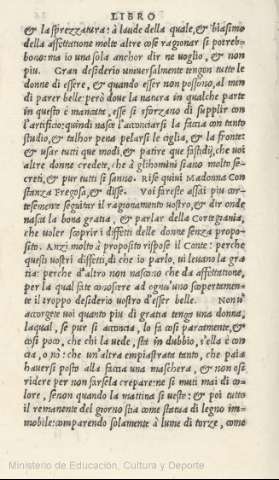 LIBRO
& la sprezzatura: à laude della quale, & biasimo
della affettatione molte altre cose ragionar si potreb-
bono: ma io una sola anchor dir ne voglio, & non
piu. Gran desiderio universalmente tengon tutte le
donne di essere, & quando esser non possono, al men
di parer belle: però dove la natura in qualche parte
in questo è mancata, esse si sforzano di supplir con
l'artificio: quindi nasce l'acconciarsi la faccia con tanto
studio, & talhor pena pelarsi le ciglia, & la fronte:
& usar tutti que modi, & patire que fastidij, che voi
altre donne credete, che à glihomini siano molto se-
creti, & pur tutti si sanno. Rise quivi Madonna Con
stanza Fregosa, & disse. Voi fareste assai piu cor-
tesemente seguitar il ragionamento vostro, & dir onde
nasca la bona gratia, & parlar della Cortegiania,
che voler scoprir i diffetti delle donne senza propo-
sito. Anzi molto à proposito rispose il Conte: perche
questi vostri diffetti, di che io parlo, vi levano la gra
tia: perche d'altro non nascono che da affettatione,
per la qual fate conoscere ad ogn'uno scopertamen-
te il troppo desiderio vostro d'esser belle. Non v'
accorgete voi quanto piu di gratia tenga una donna,
laqual, se pur si acconcia, lo fa cosi parcamente, &
cosi poco, che chi la vede, stà in dubbio, s'ella è con
cia, o nò: che un'altra empiastrata tanto, che paia
haversi posto alla faccia una maschera, & non osi
ridere per non farsela crepare: ne si muti mai di co-
lore, senon quando la mattina si veste: & poi tutto
il remanente del giorno stia come statua di legno im-
mobile: comparendo solamente à lume di torze, come
Ministerio de Educación, Cultura y Deporte